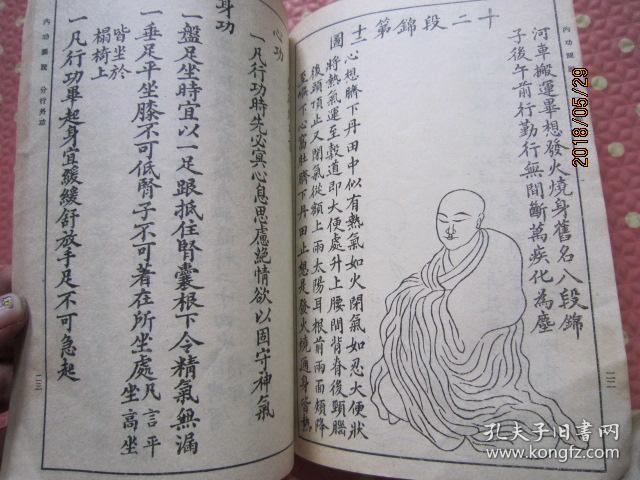 內功圖說
河車搬運畢想發火燒身舊名八段錦
子後午前行勤行無間斷萬疾化為塵
十二段錦第十二圖
心想臍下丹田中似有熱氣如火閉氣如忍大便狀
將熱氣運至穀道即大便處升上腰間背脊後頸腦
後頭頂止又閉氣從額上兩太陽耳根前兩面頰降
至喉下心窩肚臍下丹田止想是發火燒通身皆熱
二二
心功
一凡行功時先必冥心息思慮絕情欲以固守神氣
身功
一盤足坐時宜以一足跟抵住腎囊根下令精氣無漏
一垂足平坐膝不可低腎子不可著在所坐處凡言平坐高坐
皆坐於
榻椅上
一凡行功畢起身宜緩緩舒放手足不可急起
內功圖說 分行外功
二三
2018/05/29
孔夫子旧书网